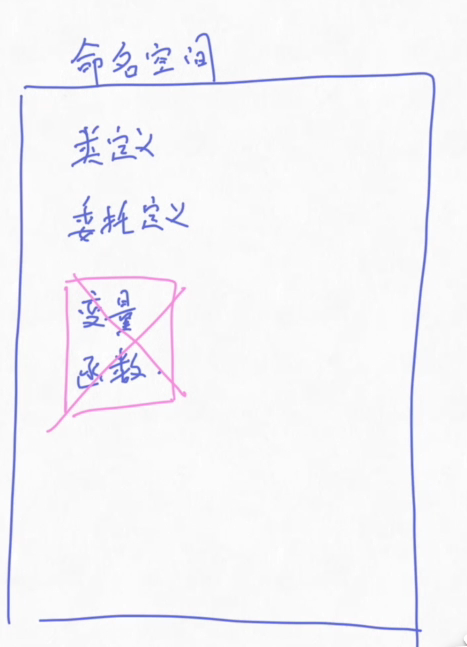 命名空间
类定义
委托定义
变量
函数.